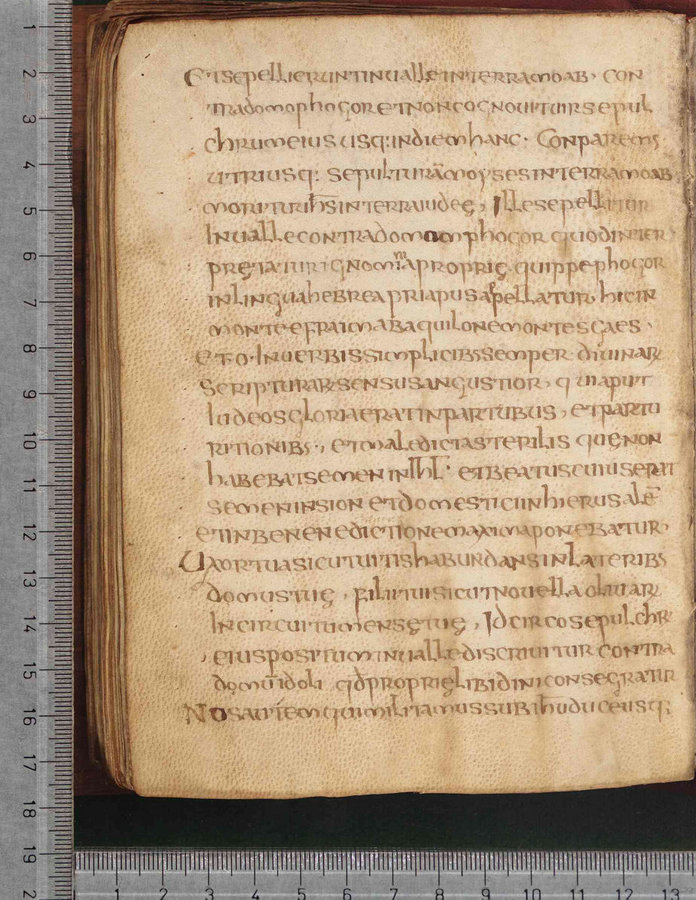 Et sepellierunt in ualle in terra moab· con
tra domo phogor et non cognouit uir sepul
chrum eius usq: in diem hanc· Conparemus
utriusq: sepulturā moyses in terra moab
moritur ihs in terra iudeę, Ille sepellitur
In ualle contra domom phogor quod inter
prętatur ignominia proprię quippe phogor
in lingua hebrea priapus appellatur, hic in
monte efraim ab aquilone montes gaes·
Et o· In uerbis simplicibs semper diuinar
scripturar sensus angustior, quia aput
Iudeos gloria erat in partubus, et partu
ritionibs·, et maledicta sterilis quę non
habebat semen in ihl· et beatus cuius erat
semen in sion et domestici in hierusalē
et in benenedictione maxima ponebatur·
Uxor tua sicut uitis habundans in lateribs
domus tuę, filii tui sicut nouella oliuar
In circuitu mensę tuę, Idcirco sepulchr
eius positum in ualle discriuitur contra
domū idoli qd proprię libidini consegratur
Nos autem qui militamus sub ihu duce usq;